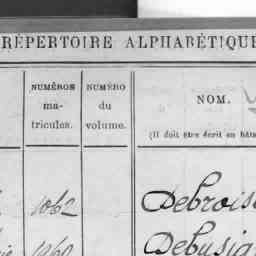 RÉPERTOIRE ALPHABÉTIQUE
NUMÉROS
ma-
tricules.
NUMÉRO
du
volume.
NOM.
(Il doit être écrit en bâta
1062
Debrois
Debusig